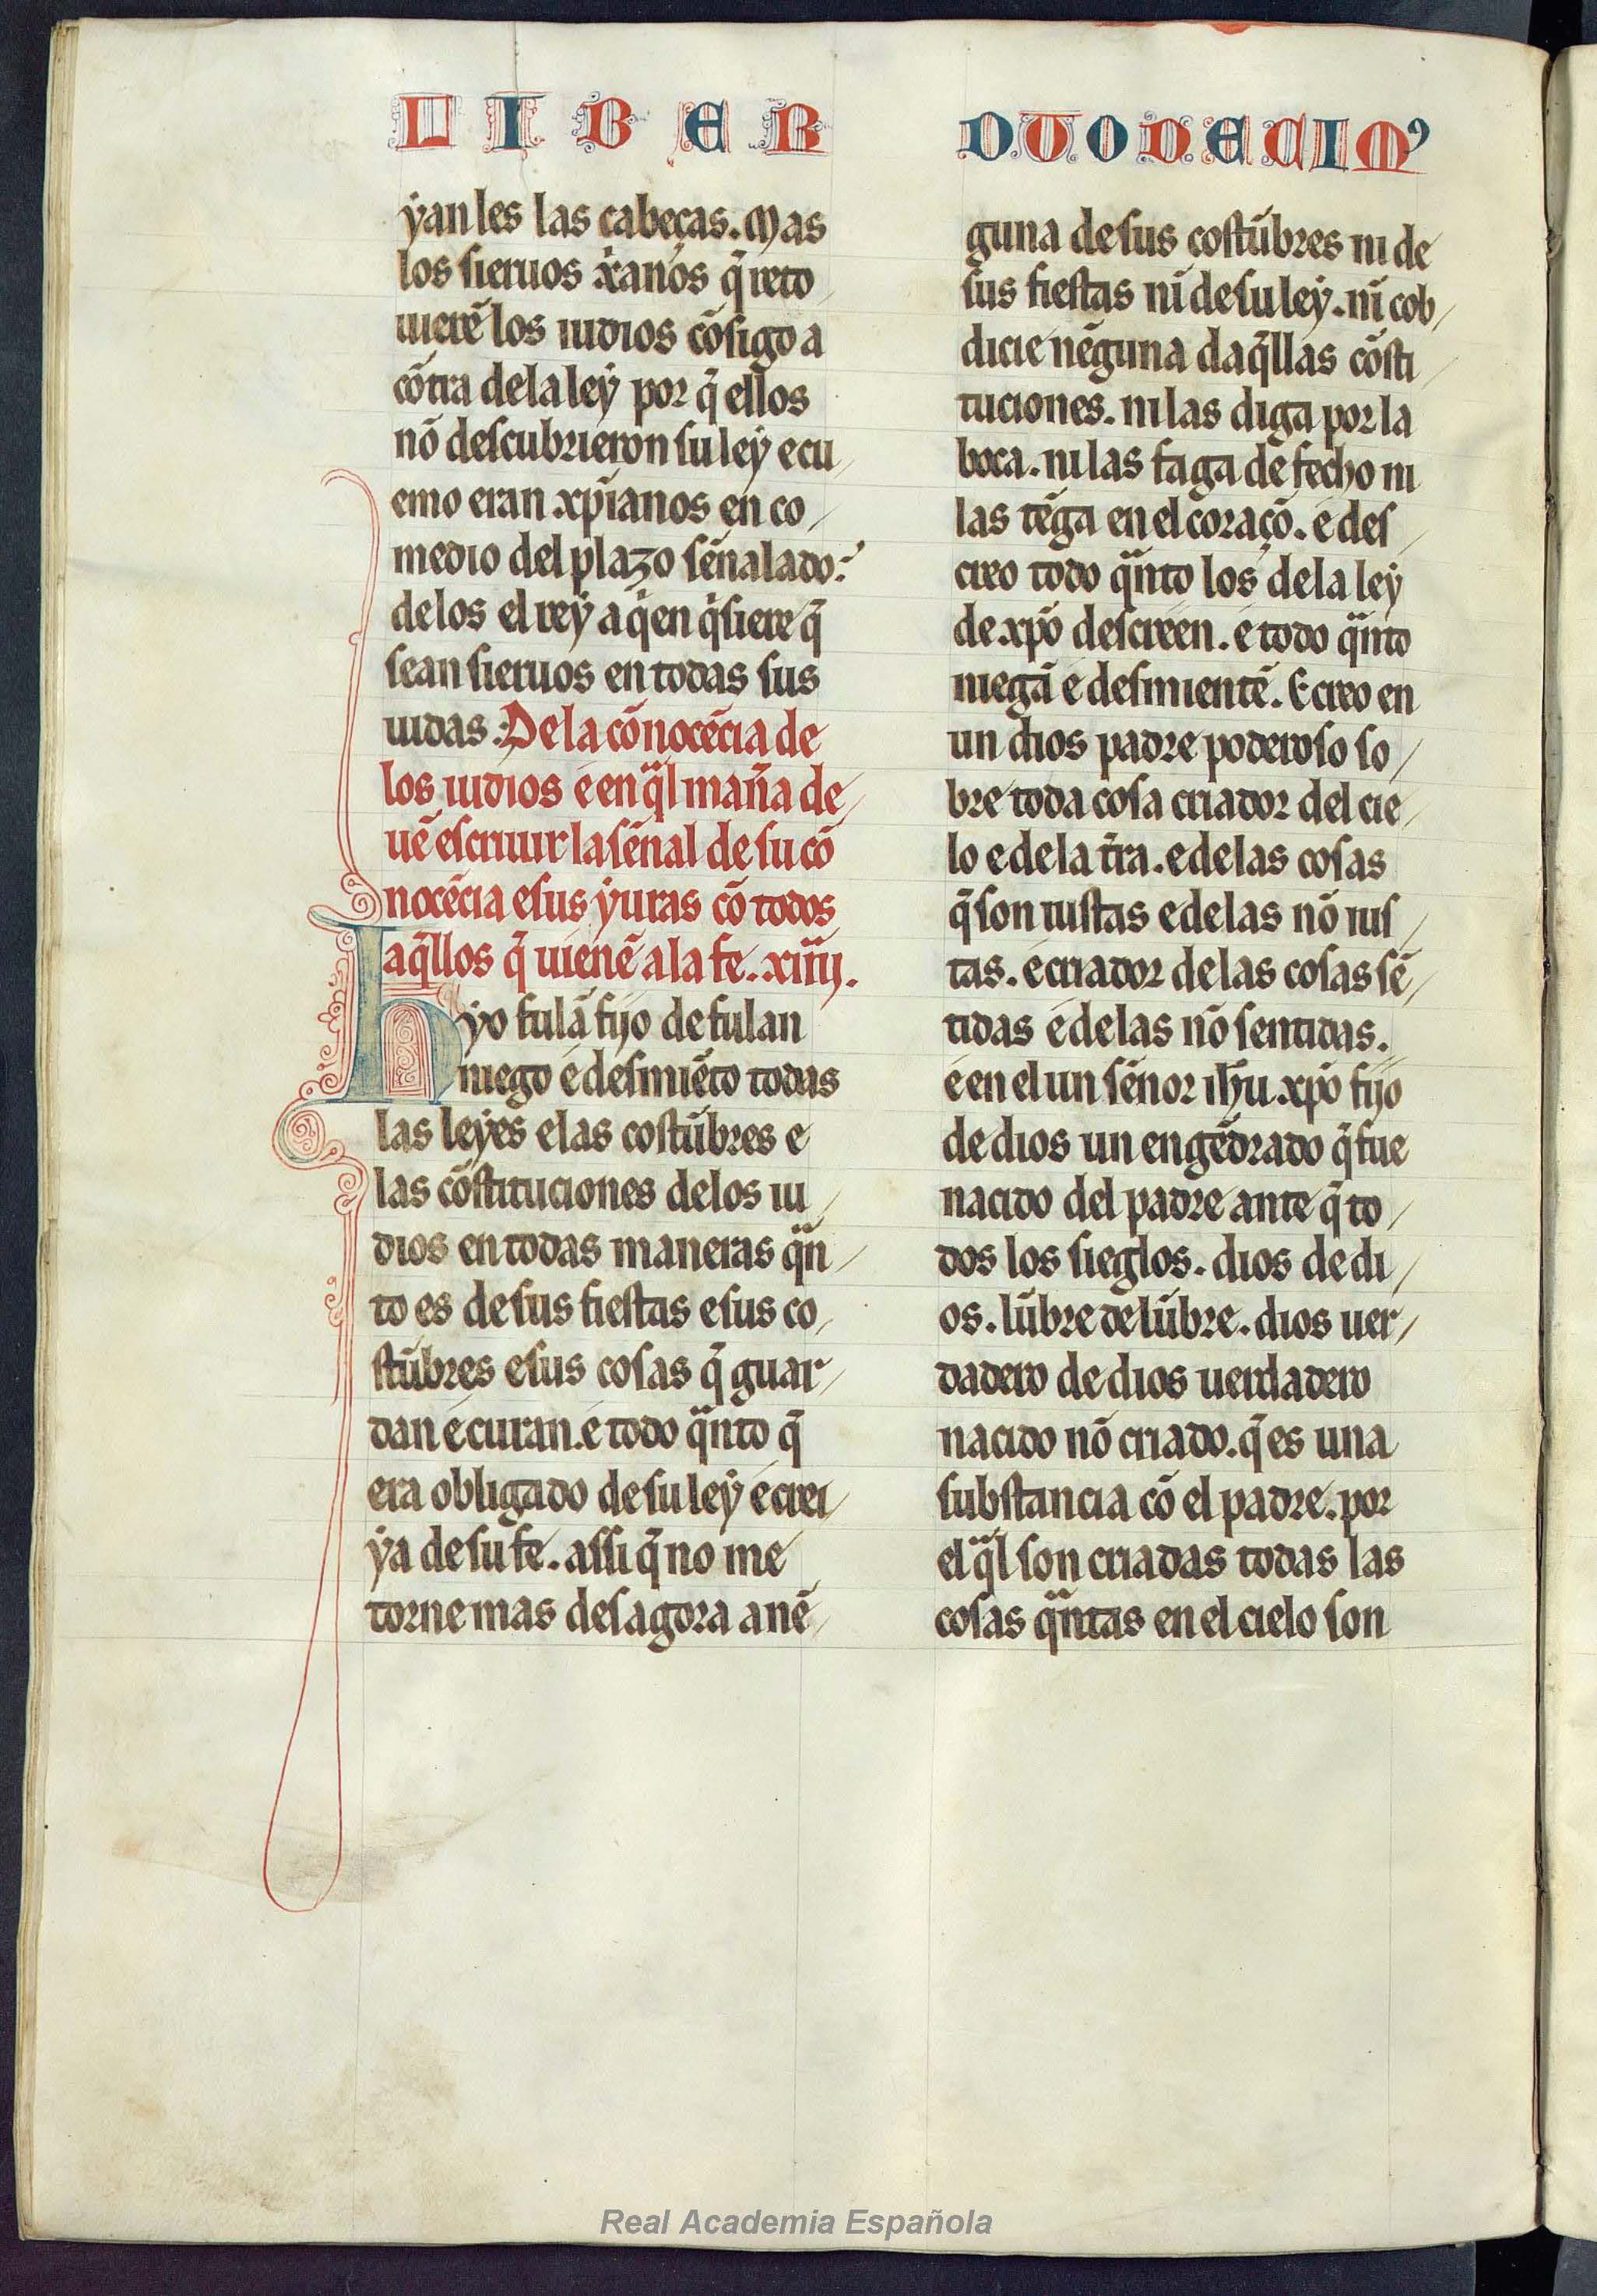 LIBER DUODECIMꝰ
yan les las cabeças. Mas
los sieruos xanos q̄ reto
uierẽ los iudios cõsigo a
cõtra dela ley por q̄ ellos
nõ descubrieron su ley e cu
emo eran xp̄ianos en co
medio del plazo sẽnalado:
delos el rey a qͥen qͥsiere q̄
sean sieruos en todas sus
uidas. De la cõnocẽcia de
los iudios e en qͣl mañа de
uẽ escriuir la sẽnal de su cõ
nocẽcia e sus yuras cõ todos
aq̄llos q̄ uienẽ a la fe. xiiij.
hyo fulã fijo de fulan
niego e desmiẽto todas
las leyes e las costũbres e
las cõstituciones delos iu
dios en todas maneras qͣn
to es de sus fiestas e sus co
stũbres e sus cosas q̄ guar
dan e curan. e todo qͣnto q̄
era obligado de su ley e crei
ya de su fe. assi q̄ no me
torne mas des agora a nẽ
guna de sus costũbres ni de
sus fiestas ni de su ley. ni cob
dicie nẽguna daq̄llas cõsti
tuciones. ni las diga por la
boca. ni las faga de fecho ni
las tẽga en el coraçõ. e des
creo todo qͣnto los dela ley
de xp̄o descreen. e todo qͣnto
niegã e desmientẽ. E creo en
un dios padre poderoso so
bre toda cosa criador del cie
lo e dela tr̄ra. e delas cosas
q̄ son iustas e delas nõ ius
tas. e criador delas cosas sẽ
tidas e delas nõ sentidas.
e en el un sẽnor ih̄u xp̄o fijo
de dios un engẽdrado q̄ fue
nacido del padre ante q̄ to
dos los sieglos. dios de di
os. lũbre de lũbre. dios uer
dadero de dios uerdadero
nacido nõ criado. q̄ es una
substancia cõ el padre. por
el qͣl son criadas todas las
cosas qͣntas en el cielo son
Real Academia Española